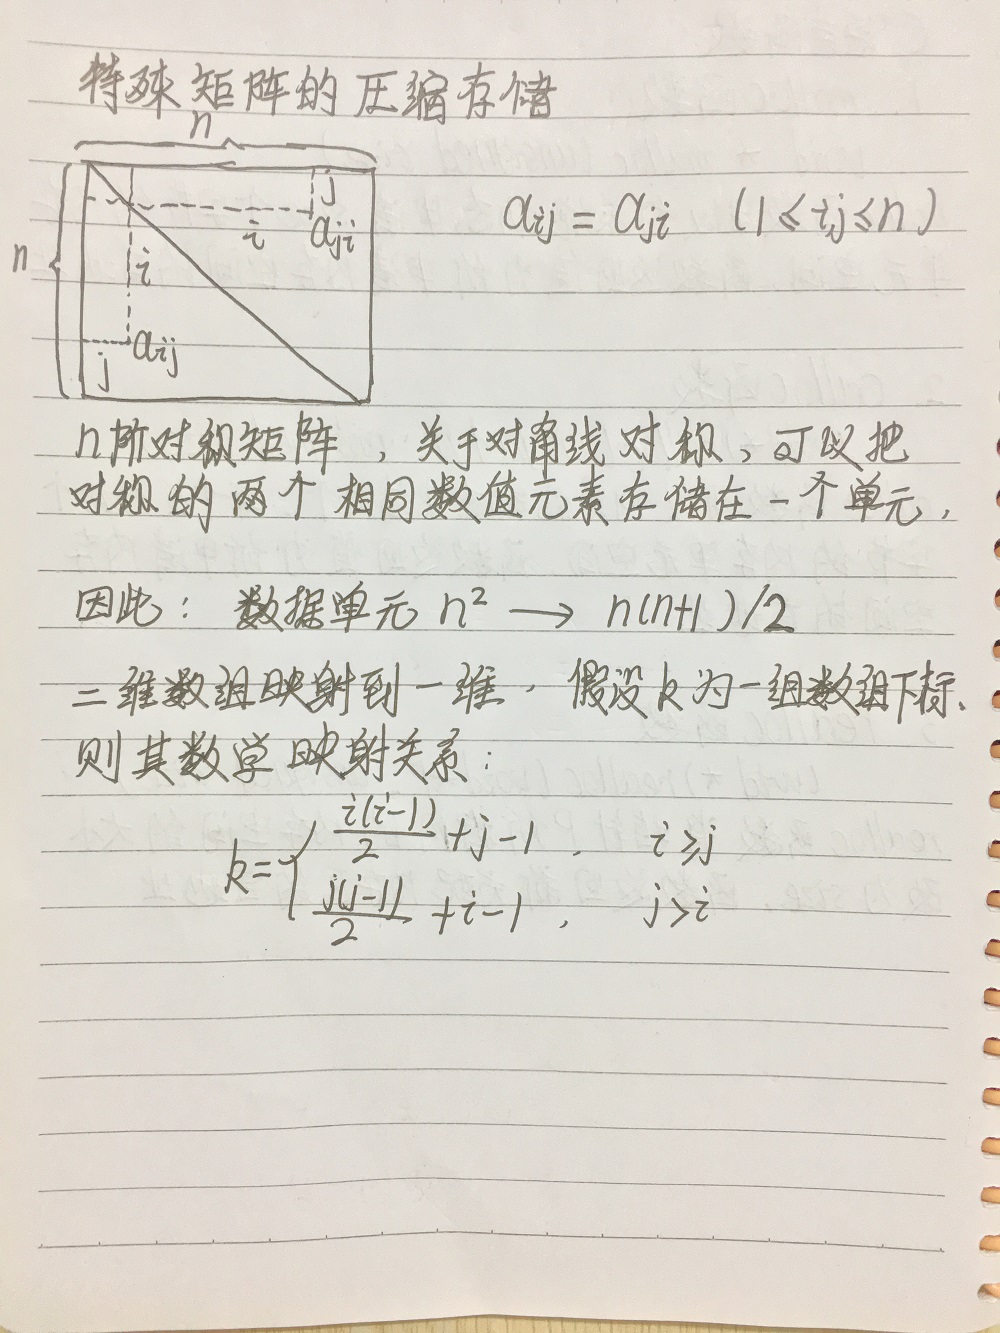 特殊矩阵的压缩存储
n
n
j
i
aji
i
aij
j
aij = aji (1≤i,j≤n)
n阶对称矩阵,关于对角线对称,可以把
对称的两个相同数值元素存储在一个单元,
因此: 数据单元 n² → n(n+1)/2
二维数组映射到一维. 假设k为一组数组下标、
则其数学映射关系:
k= { i(i-1)/2 +j-1 , i≥j
j(j-1)/2 +i-1 , j>i